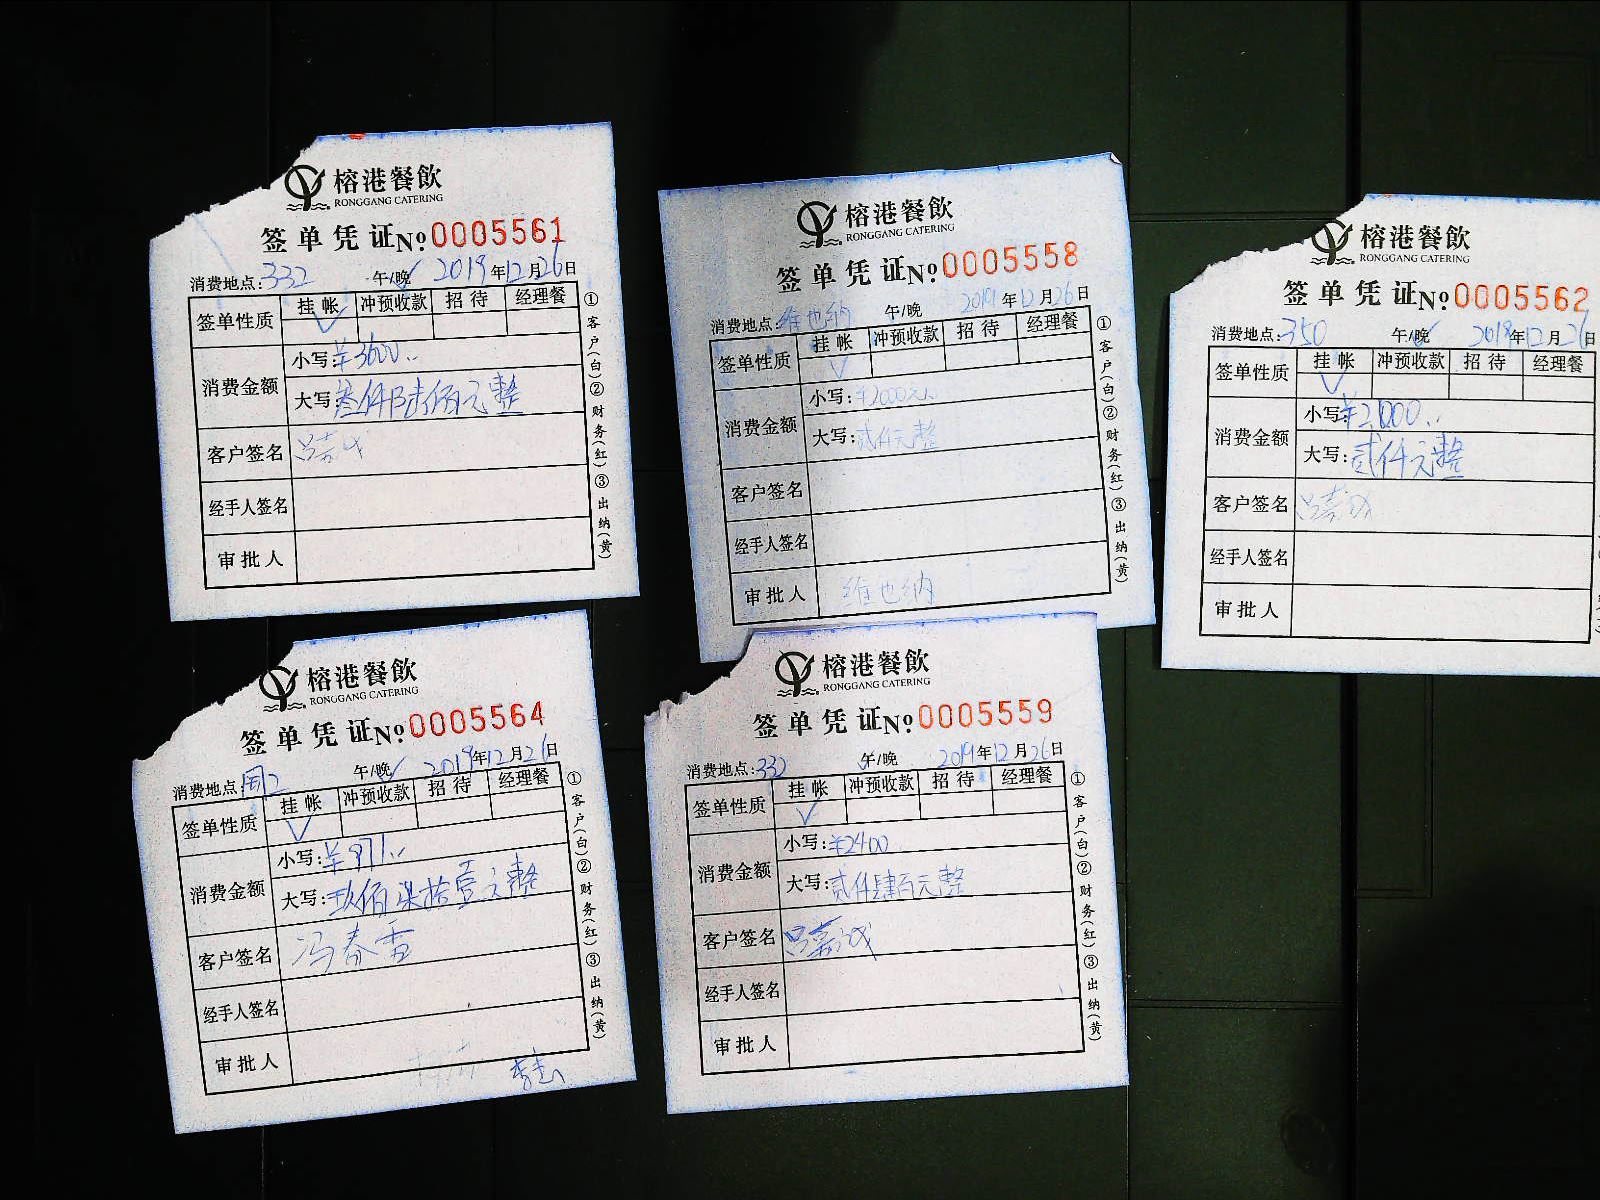 榕港餐飲
RONGGANG CATERING
签单凭证 No 0005561
消费地点:332 午/晚✓ 2019年12月26日
签单性质 挂帐 冲预收款 招待 经理餐
✓
消费金额 小写:¥3600..
大写:叁仟陆佰元整
客户签名
经手人签名
审批人
①客户(白)②财务(红)③出纳(黄)
榕港餐飲
RONGGANG CATERING
签单凭证 No 0005558
消费地点:维也纳 午/晚 2019年12月26日
签单性质 挂帐 冲预收款 招待 经理餐
✓
消费金额 小写:¥2000元
大写:贰仟元整
客户签名
经手人签名
审批人 维也纳
①客户(白)②财务(红)③出纳(黄)
榕港餐飲
RONGGANG CATERING
签单凭证 No 0005562
消费地点:350 午/晚✓ 2019年12月26日
签单性质 挂帐 冲预收款 招待 经理餐
✓
消费金额 小写:¥2000..
大写:贰仟元整
客户签名
经手人签名
审批人
榕港餐飲
RONGGANG CATERING
签单凭证 No 0005564
消费地点:周2 午/晚✓ 2019年12月26日
签单性质 挂帐 冲预收款 招待 经理餐
✓
消费金额 小写:¥971..
大写:玖佰柒拾壹元整
客户签名 冯春雪
经手人签名
审批人
①客户(白)②财务(红)③出纳(黄)
榕港餐飲
RONGGANG CATERING
签单凭证 No 0005559
消费地点:332 午/晚 2019年12月26日
签单性质 挂帐 冲预收款 招待 经理餐
✓
消费金额 小写:¥2400
大写:贰仟肆百元整
客户签名 吕嘉诚
经手人签名
审批人
①客户(白)②财务(红)③出纳(黄)